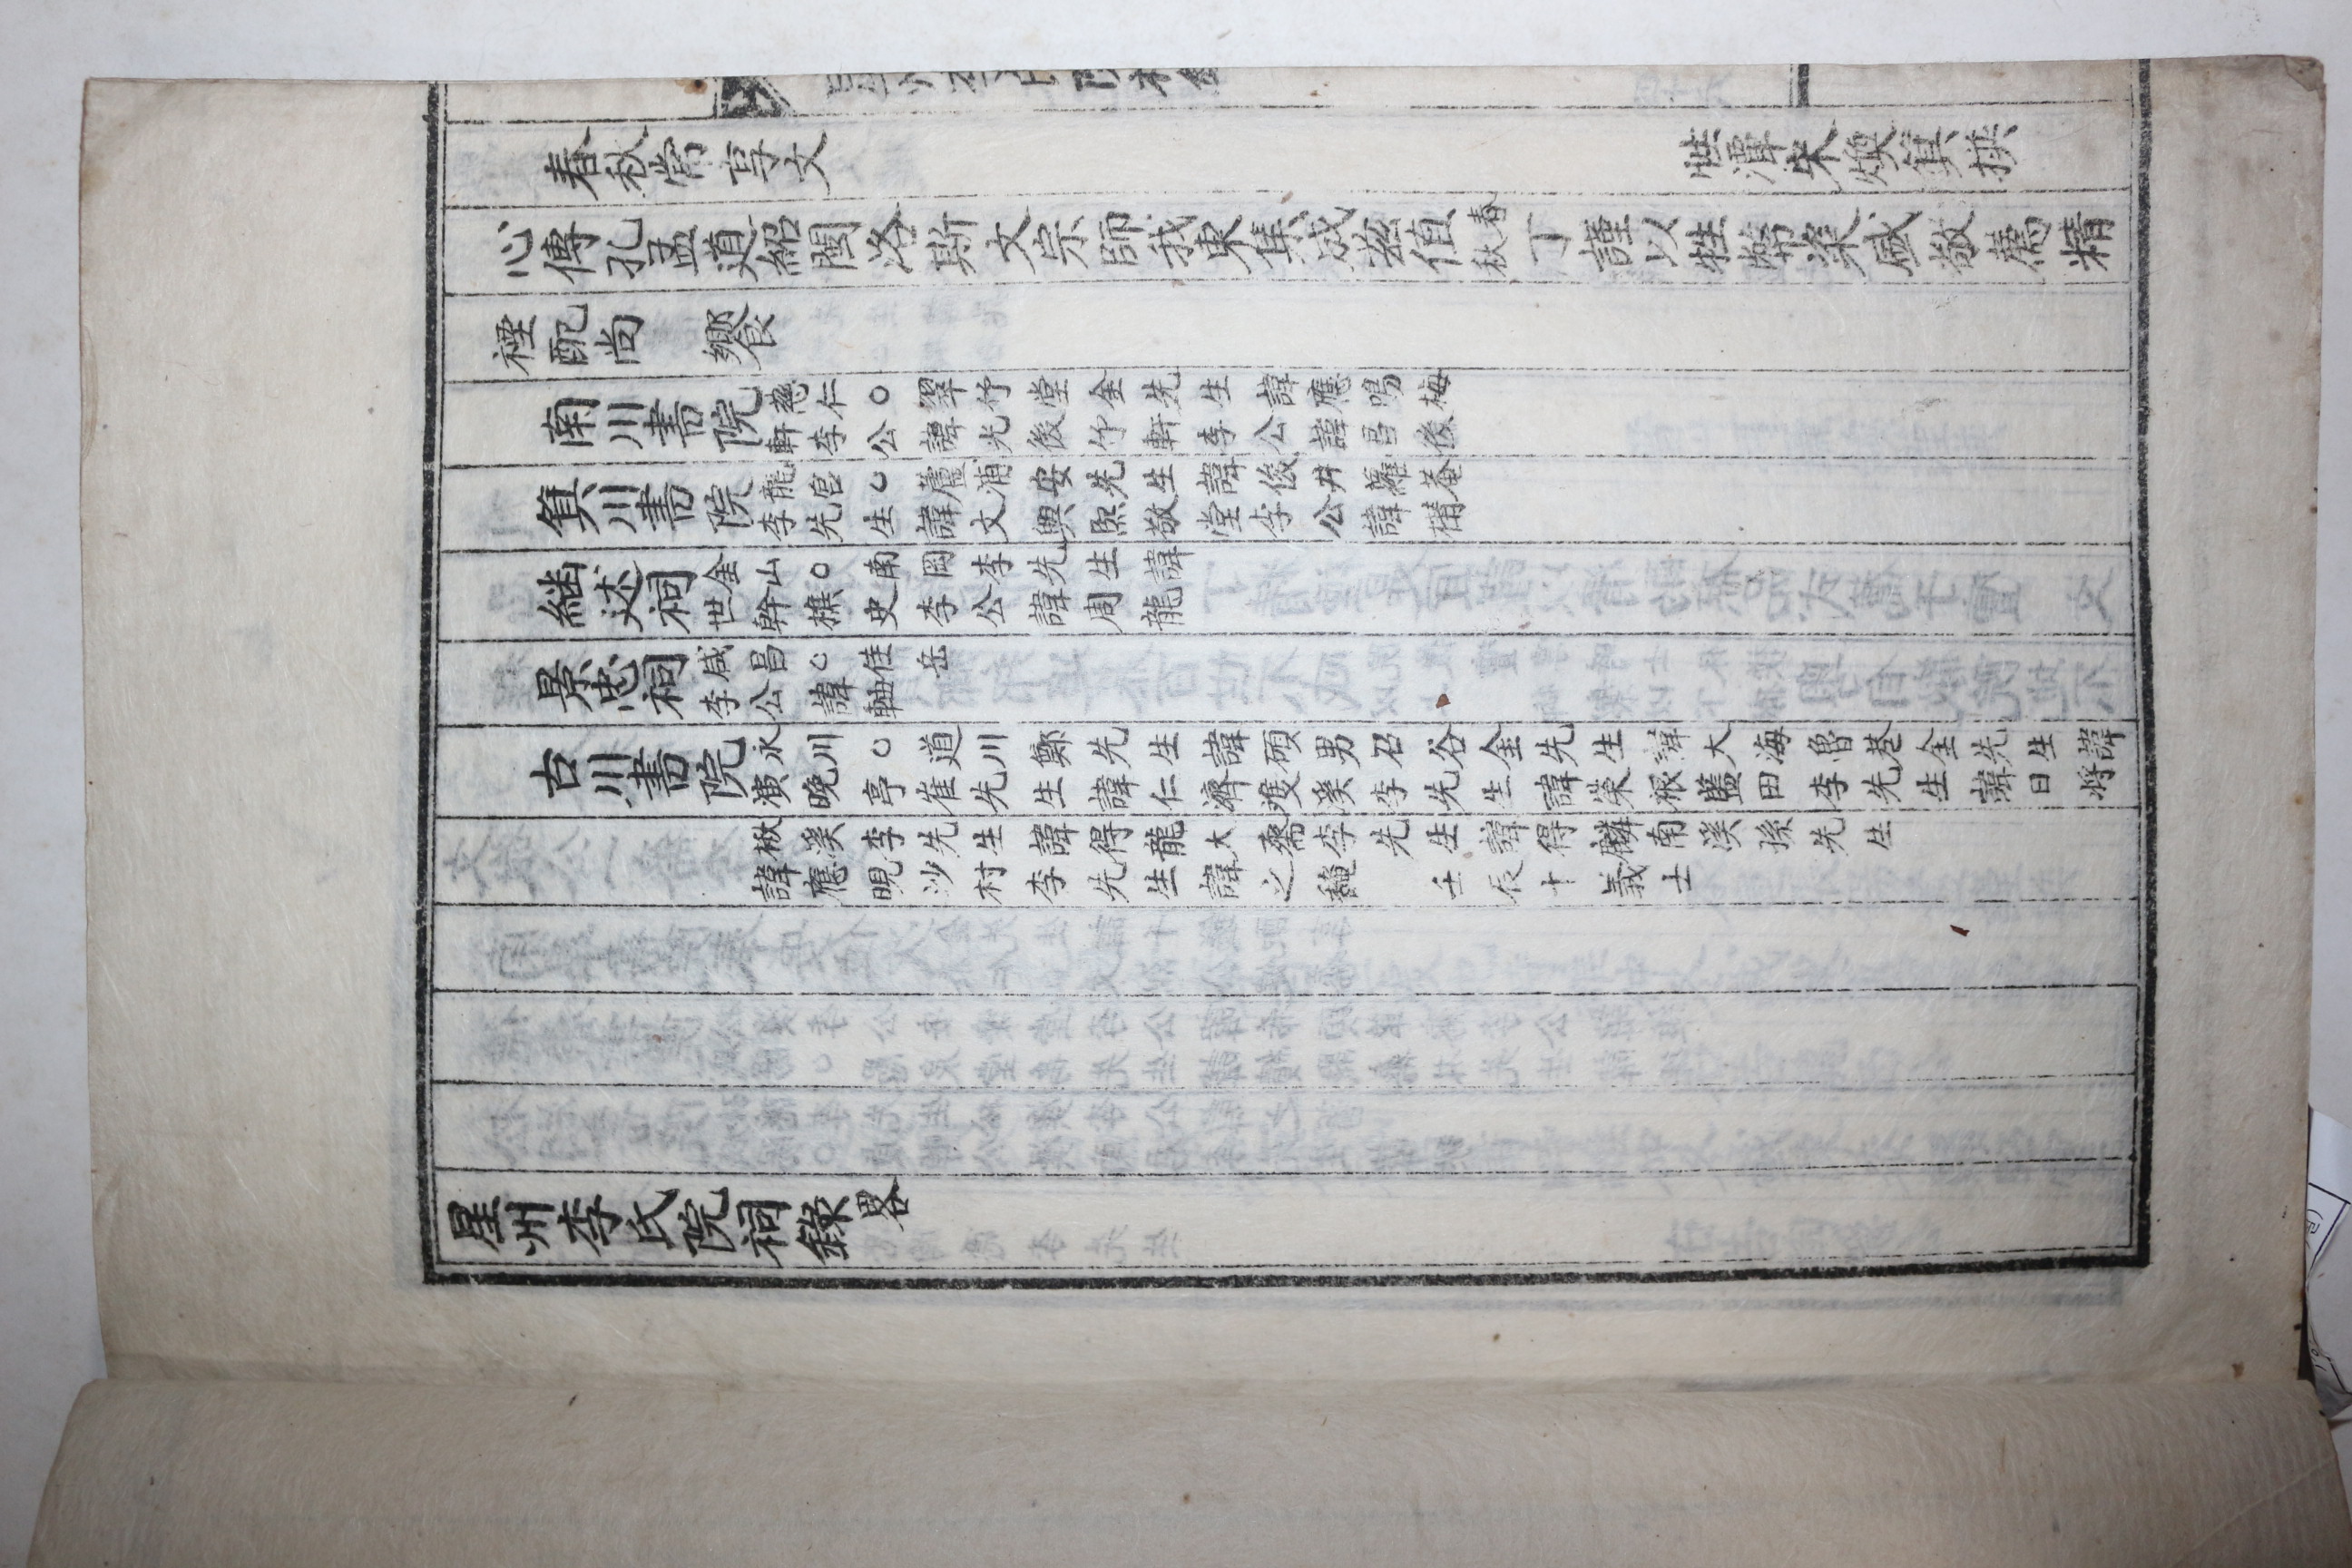 春秋常享文 性潭宋煥箕撰
心傳孔孟道紹閩洛斯文宗師我東集成茲值春秋丁謹以牲幣粢盛敬薦精
禋配尚 饗
南川書院 慈仁○翠竹堂金先生諱應鳴梅
軒李公諱光後竹軒李公諱昌後
箕川書院 龍宮○蘆浦安先生諱俊井蘿菴
李先生諱文興熙敬堂李公諱構
繼述祠 金山○南岡李先生諱
世幹樵史李公諱周龍
景忠祠 咸昌○佳岳
李公諱軸
古川書院 永川○道川鄭先生諱碩男召谷金先生諱大海魯巷金先生諱
演晚亭崔先生諱仁濟雙溪李先生諱榮根藍田李先生諱日將
楸溪李先生諱得龍大齋李先生諱得麟南溪孫先生
諱應晛沙村李先生諱之馣 壬辰十義士
星州李氏院祠錄畧